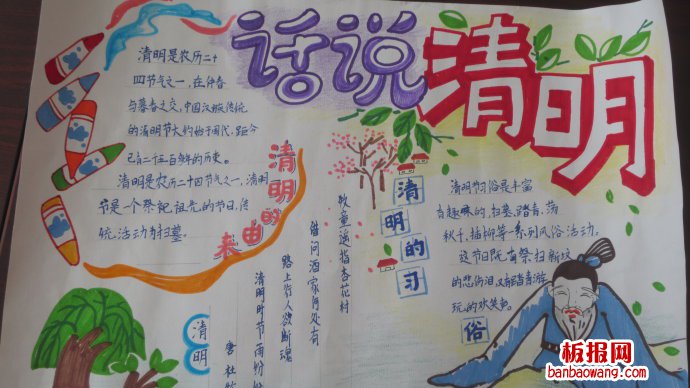 话说清明
清明是农历二十
四节气之一，在仲春
与暮春之交，中国汉族传统
的清明节大约始于周代，距今
已有二千五百多年的历史。
清明是农历二十四节气之一，清明
节是一个祭祀祖先的节日，传
统活动为扫墓。
清明的
来由
清明
唐 杜牧
清明时节雨纷纷
路上行人欲断魂
借问酒家何处有
牧童遥指杏花村
清明的习
俗
清明节习俗是丰富
有趣味的，扫墓、踏青、荡
秋千、插柳等一系列风俗活动。
这节日既有祭扫新坟
的悲伤泪，又有踏青游
玩的欢笑声。
板报网
banbaowang.com